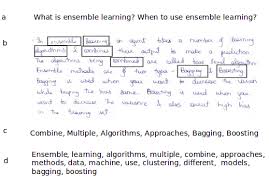 a What is ensemble learning? When to use ensemble learning?
b In ensemble learning an agent takes a number of learning
algorithms & combines their output to make a prediction
The algorithms being combined are called base level algorithms
Ensemble methods are of two types - Bagging & Boosting
Bagging is used when you want to decrease the variance
while keeping bias same. Boosting is used when you
want to decrease the variance & also amount high bias
in the training set
c Combine, Multiple, Algorithms, Approaches, Bagging, Boosting
d Ensemble, learning, algorithms, multiple, combine, approaches,
methods, data, machine, use, clustering, different, models,
bagging, boosting